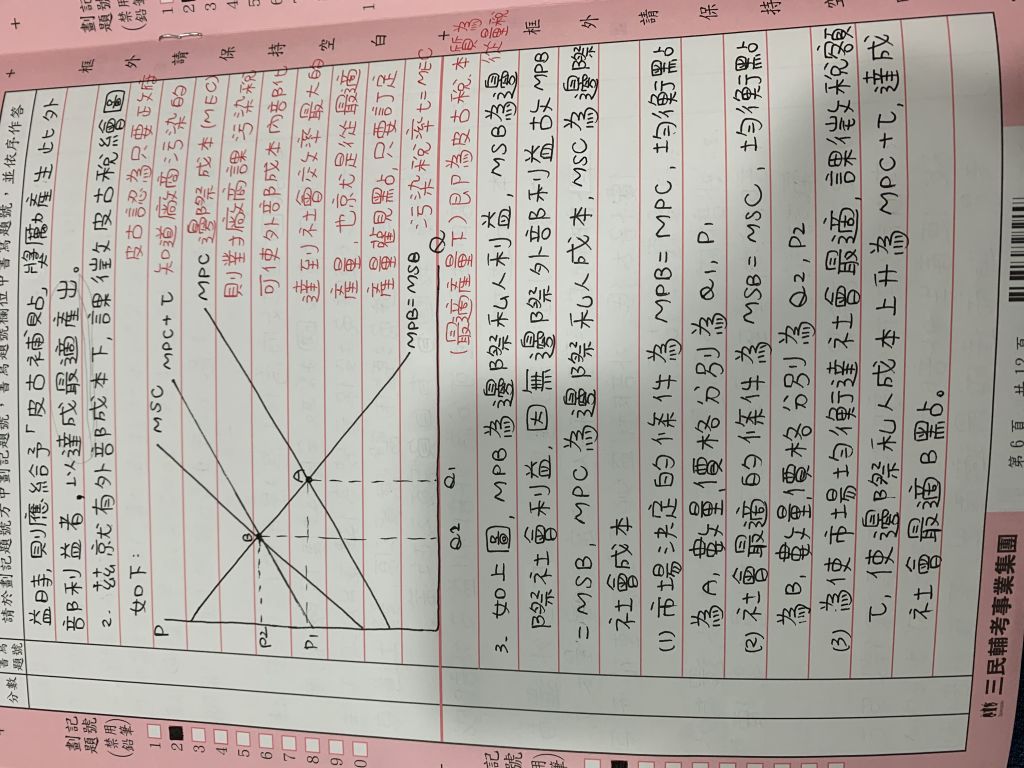 請於劃記題號方中劃記題號，書寫題號欄位中書寫題號，並依序作答
分數
題號
劃記題號
(禁用鉛筆)
1
2
3
4
5
6
7
8
9
0
框 外 請 保 持 空 白
益時,則應給予「皮古補貼」,獎勵產生此外
部利益者,以達成最適產出。
2. 茲就有外部成本下,課徵皮古稅繪圖
如下:
皮古認為只要政府
知道廠商污染的
邊際成本(MEC)
則對廠商課污染稅
可使外部成本內部化
達到社會效率最大的
產量,也就是從最適
產量觀點,只要訂定
污染稅率t=MEC
(最適產量下)即為皮古稅,本質為
從量稅
P
MSC
MPC+t
MPC
B
A
P2
P1
MPB=MSB
Q2
Q1
Q
3. 如上圖,MPB為邊際私人利益,MSB為邊
際社會利益,因無邊際外部利益故MPB
=MSB,MPC為邊際私人成本,MSC為邊際
社會成本
(1) 市場決定的條件為MPB=MPC,均衡點
為A,數量,價格分別為Q1,P1
(2) 社會最適的條件為MSB=MSC,均衡點
為B,數量,價格分別為Q2,P2
(3) 為使市場均衡達社會最適,課徵稅額
t,使邊際私人成本上升為MPC+t,達成
社會最適B點。
框 外 請 保 持 空
三民輔考事業集團
第6頁,共12頁